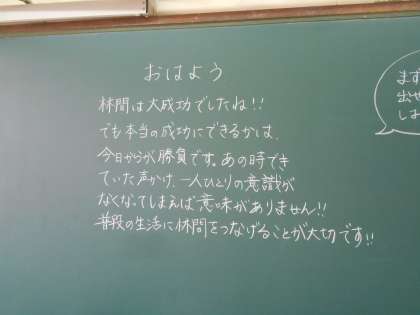 おはよう
林間は大成功でしたね!!
でも本当の成功にできるかは、
今日からが勝負です。あの時でき
ていた声かけ、一人ひとりの意識が
なくなってしまえば意味がありません!!
普段の生活に林間をつなげることが大切です!!
まず
出せ
しよ